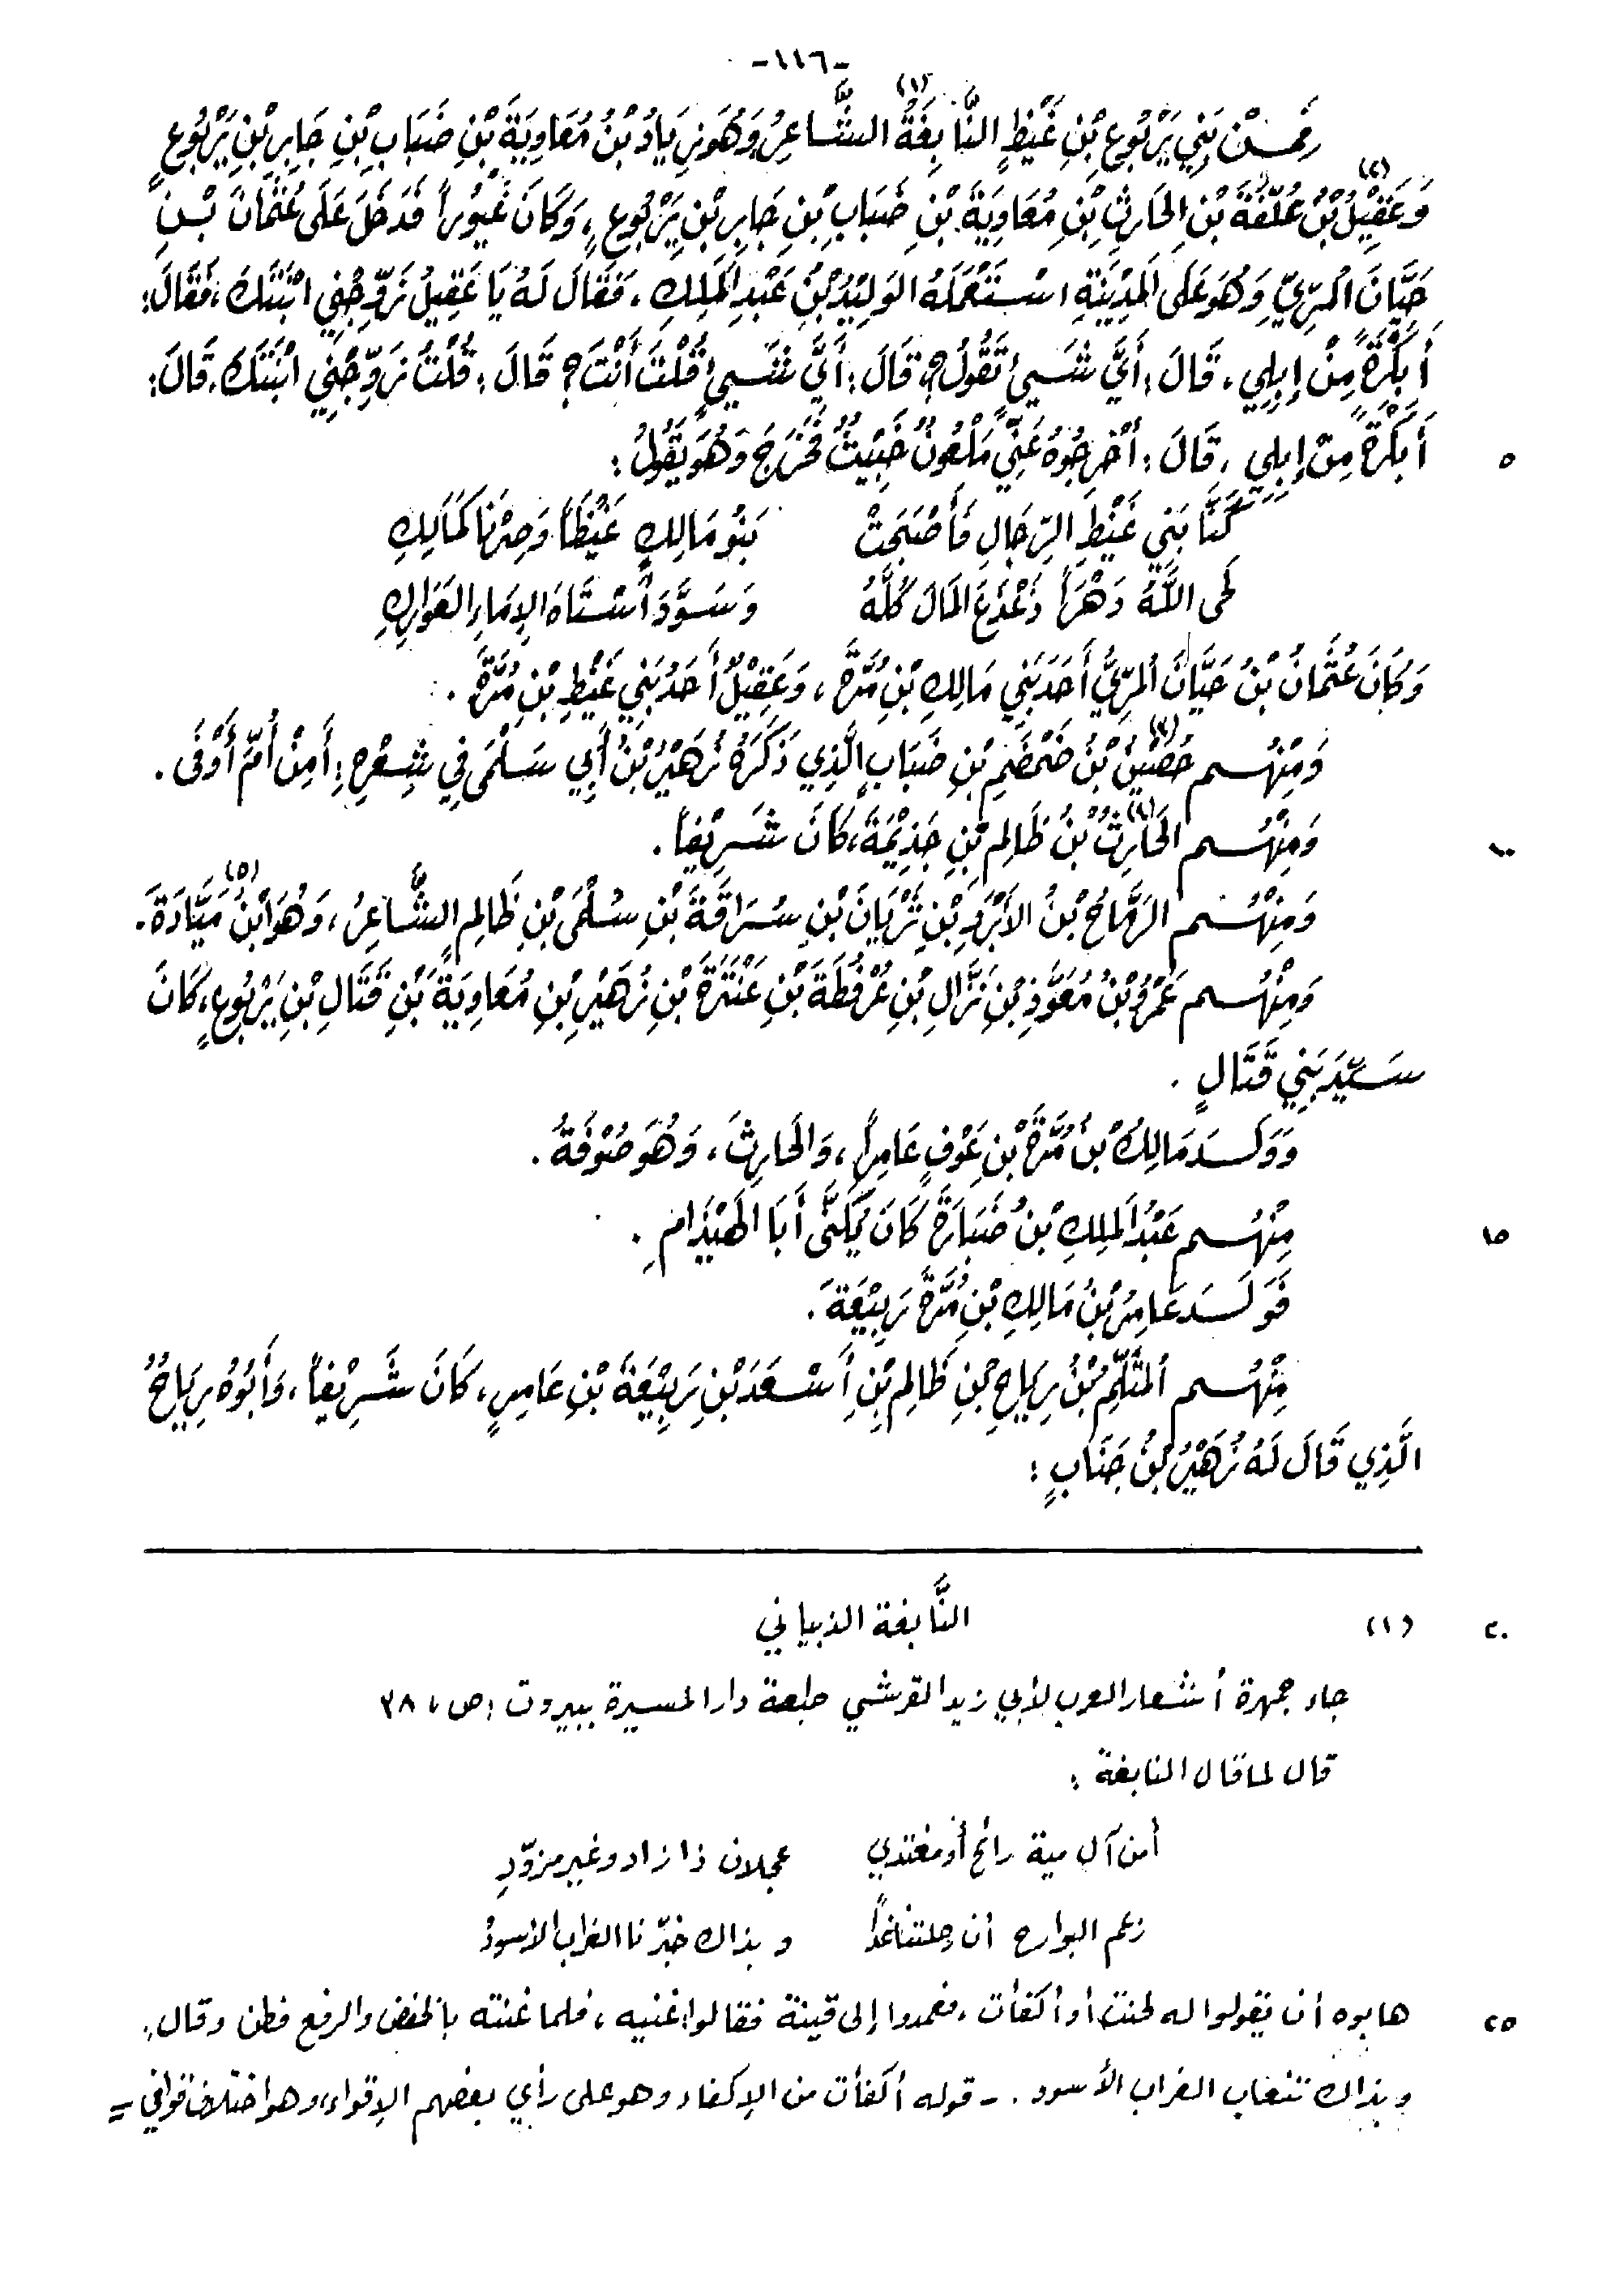 -١١٦-
فَمِنْ بَنِي يَرْبُوعِ بْنِ غَيْظٍ النَّابِغَةُ (١) الشَّاعِرُ وَهُوَ زِيَادُ بْنُ مُعَاوِيَةَ بْنِ ضَبَابِ بْنِ جَابِرِ بْنِ يَرْبُوعٍ
وَعَقِيْلُ (٢) بْنُ عُلَّفَةَ بْنِ الحَارِثِ بْنِ مُعَاوِيَةَ بْنِ ضَبَابِ بْنِ جَابِرِ بْنِ يَرْبُوعٍ، وَكَانَ غَيُوْراً فَدَخَلَ عَلَى عُثْمَانَ بْنِ
حَيَّانَ المُرِّيِّ وَهُوَ عَلَى المَدِيْنَةِ اسْتَعْمَلَهُ الوَلِيْدُ بْنُ عَبْدِ المَلِكِ، فَقَالَ لَهُ يَا عَقِيلُ زَوِّجْنِي ابْنَتَكَ، فَقَالَ:
أَبَكْرَةً مِنْ إِبِلِي، قَالَ: أَيَّ شَيءٍ تَقُولُ؟، قَالَ: أَيَّ شَيءٍ قُلْتَ أَنْتَ؟ قَالَ: قُلْتُ زَوِّجْنِي ابْنَتَكَ، قَالَ:
أَبَكْرَةً مِنْ إِبِلِي، قَالَ: أَخْرِجُوهُ عَنِّي مَلْعُونٌ خَبِيْثٌ فَخَرَجَ وَهُوَ يَقُولُ: ٥
كُنَّا بَنِي غَيْظِ الرِّجَالِ فَأَصْبَحَتْ بَنُو مَالِكٍ غَيْظَاً وَصِرْنَا كَمَالِكِ
لَحَى اللَّهُ دَهْرَاً ذَعْذَعَ المَالَ كُلَّهُ وَسَوَّدَ أَسْتَاهَ الإِمَاءِ العَوَارِكِ
وَكَانَ عُثْمَانُ بْنُ حَيَّانَ المُرِّيُّ أَحَدَ بَنِي مَالِكِ بْنِ مُرَّةَ، وَعَقِيْلٌ أَحَدُ بَنِي غَيْظِ بْنِ مُرَّةَ.
وَمِنْهُم حُصَيْنُ (٣) بْنُ ضَمْضَمِ بْنِ ضَبَابٍ الَّذِي ذَكَرَهُ زُهَيْرُ بْنُ أَبِي سَلْمَى فِي شِعْرِهِ: أَمِنْ أُمِّ أَوْفَى.
وَمِنْهُم الحَارِثُ (٤) بْنُ ظَالِمِ بْنِ جَذِيْمَةَ، كَانَ شَرِيْفاً. ١٠
وَمِنْهُم الرَمَّاحُ بْنُ الأَبْرَدِ بْنِ ثَرْيَانَ بْنِ سُرَاقَةَ بْنِ سُلْمَى بْنِ ظَالِمٍ الشَّاعِرُ، وَهُوَ ابْنُ مَيَّادَةَ (٥).
وَمِنْهُم عَمْرُو بْنُ مُعَوَّذِ بْنِ نَزَّالِ بْنِ عُرْفُطَةَ بْنِ عَنْتَرَةَ بْنِ زُهَيْرِ بْنِ مُعَاوِيَةَ بْنِ قَتَالِ بْنِ يَرْبُوعٍ، كَانَ
سَيِّدَ بَنِي قَتَالٍ.
وَوَلَدَ مَالِكُ بْنُ مُرَّةَ بْنِ عَوْفٍ عَامِراً، وَالحَارِثَ، وَهُوَ صُوْفَةُ.
مِنْهُم عَبْدُ المَلِكِ بْنُ ضَبَارَةَ كَانَ يُكَنَّى أَبَا الهَيْذَامِ. ١٥
فَوَلَدَ عَامِرُ بْنُ مَالِكِ بْنِ مُرَّةَ رَبِيْعَةَ.
مِنْهُم المُثَلَّمُ بْنُ رِيَاحِ بْنِ ظَالِمِ بْنِ أَسْعَدَ بْنِ رَبِيْعَةَ بْنِ عَامِرٍ، كَانَ شَرِيْفاً، وَأَبُوْهُ رِيَاحٌ
الَّذِي قَالَ لَهُ زُهَيْرُ بْنُ جَنَابٍ:
(١) النَّابغة الذبياني ٢٠
جاء جمهرة أشعار العرب لأبي زيد القرشي طبعة دار المسيرة ببيروت: ص، ٣٨
قال لما قال النابغة:
أمن آل مية رائح أو مغتدي عجلان ذا زاد وغير مزوّدِ
زعم البوارح أن رحلتنا غداً وبذاك خبّرنا الغراب الأسودُ
هابوه أن يقولوا له لحنت أو أكفأت، فعمدوا إلى قينة فقالوا: غنيه، فلما غنته بالخفض والرفع فطن وقال: ٢٥
وبذاك تنعاب الغراب الأسود. - قوله أكفأت من الإكفاء وهو على رأي بعضهم الإقواء، وهو اختلاف قوافي =